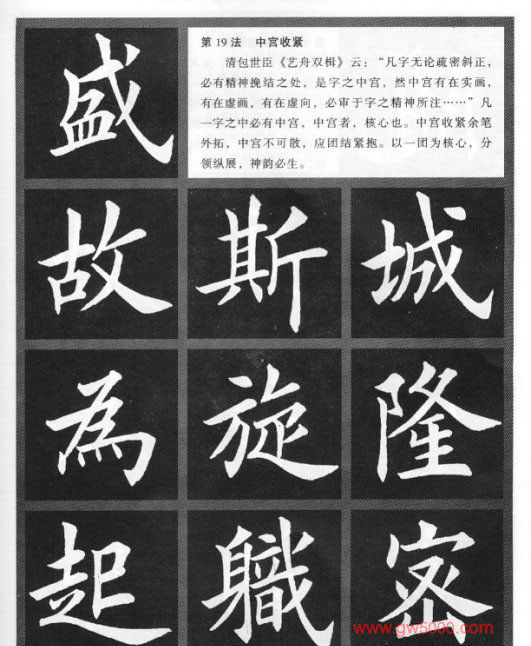 盛
第19法 中宫收紧
清包世臣《艺舟双楫》云：“凡字无论疏密斜正，
必有精神挽结之处，是字之中宫，然中宫有在实画，
有在虚画，有在虚向，必审于字之精神所注……”凡
一字之中必有中宫，中宫者，核心也。中宫收紧余笔
外拓，中宫不可散，应团结紧抱。以一团为核心，分
领纵展，神韵必生。
故 斯 城
為 旋 隆
起 職 密
www.gw5000.com